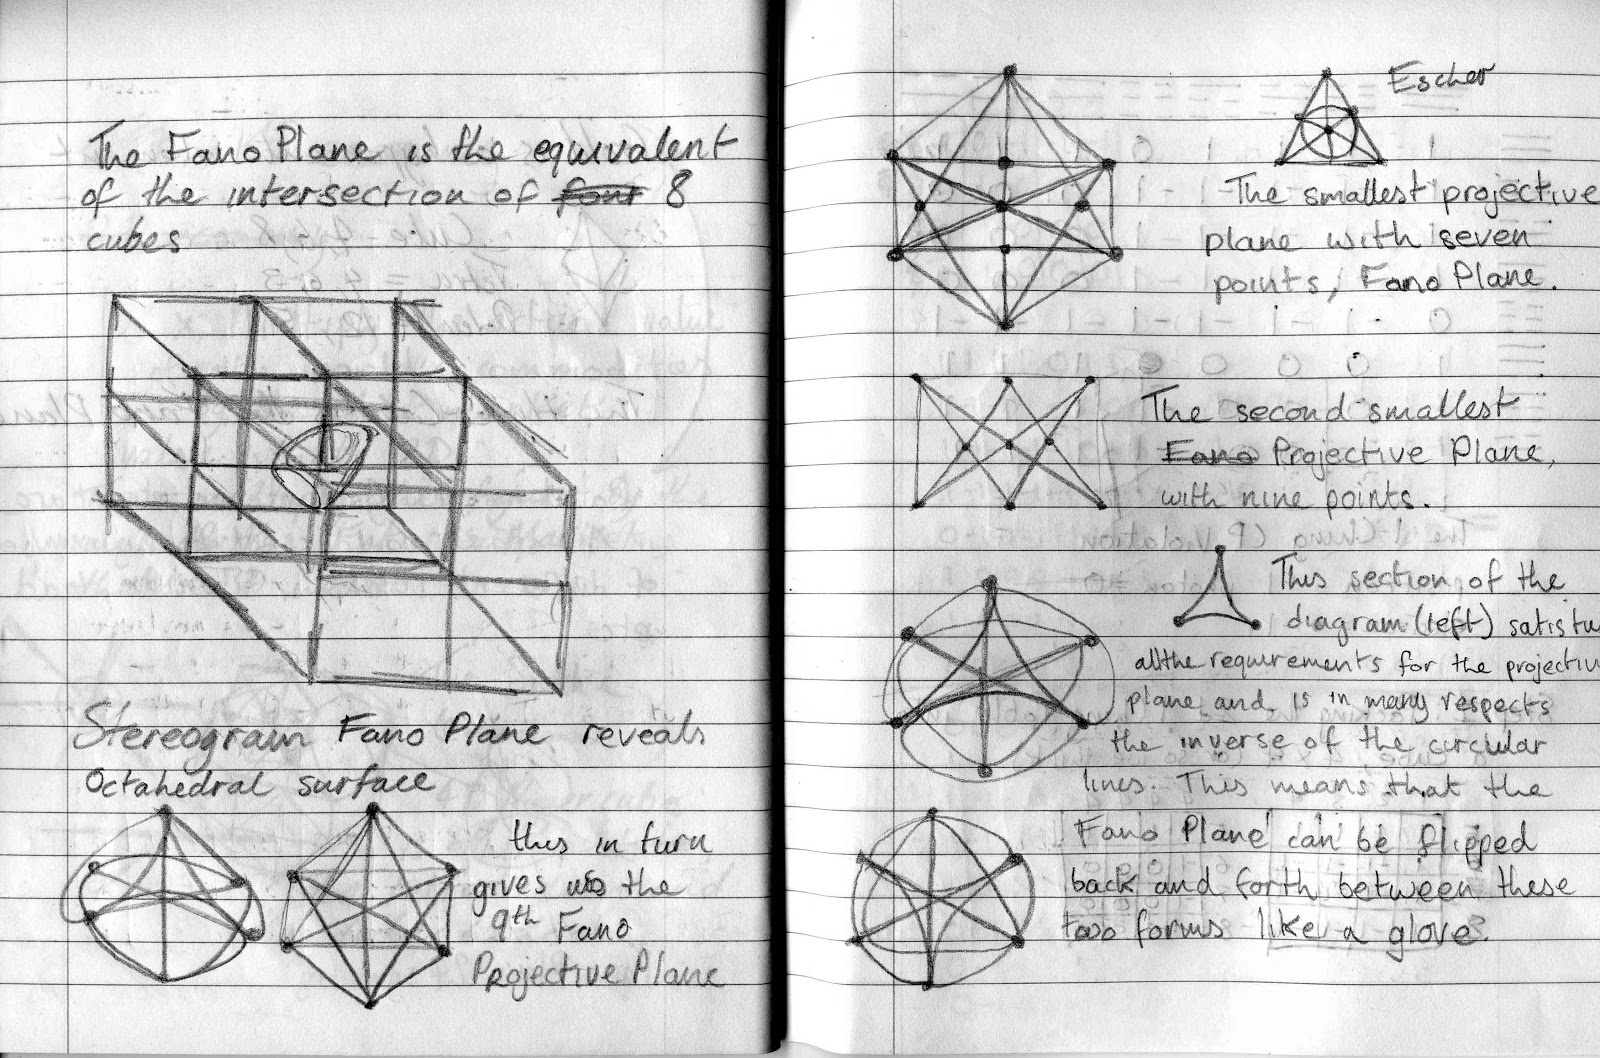 The Fano Plane is the equivalent
of the intersection of four 8
cubes
Stereogram Fano Plane reveals
Octahedral surface
this in turn
gives us the
9th Fano
Projective Plane
Escher
The smallest projective
plane with seven
points, Fano Plane.
The second smallest
Fano Projective Plane,
with nine points.
This section of the
diagram (left)
all the requirements for the
plane and is in many respects
the inverse of the circular
lines. This means that the
Fano Plane can be flipped
back and forth between these
two forms like a glove.